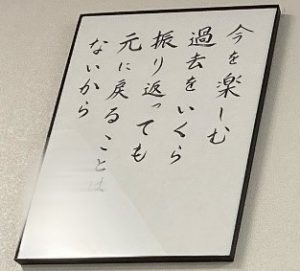 今を楽しむ
過去をいくら
振り返っても
元に戻ることは
ないから